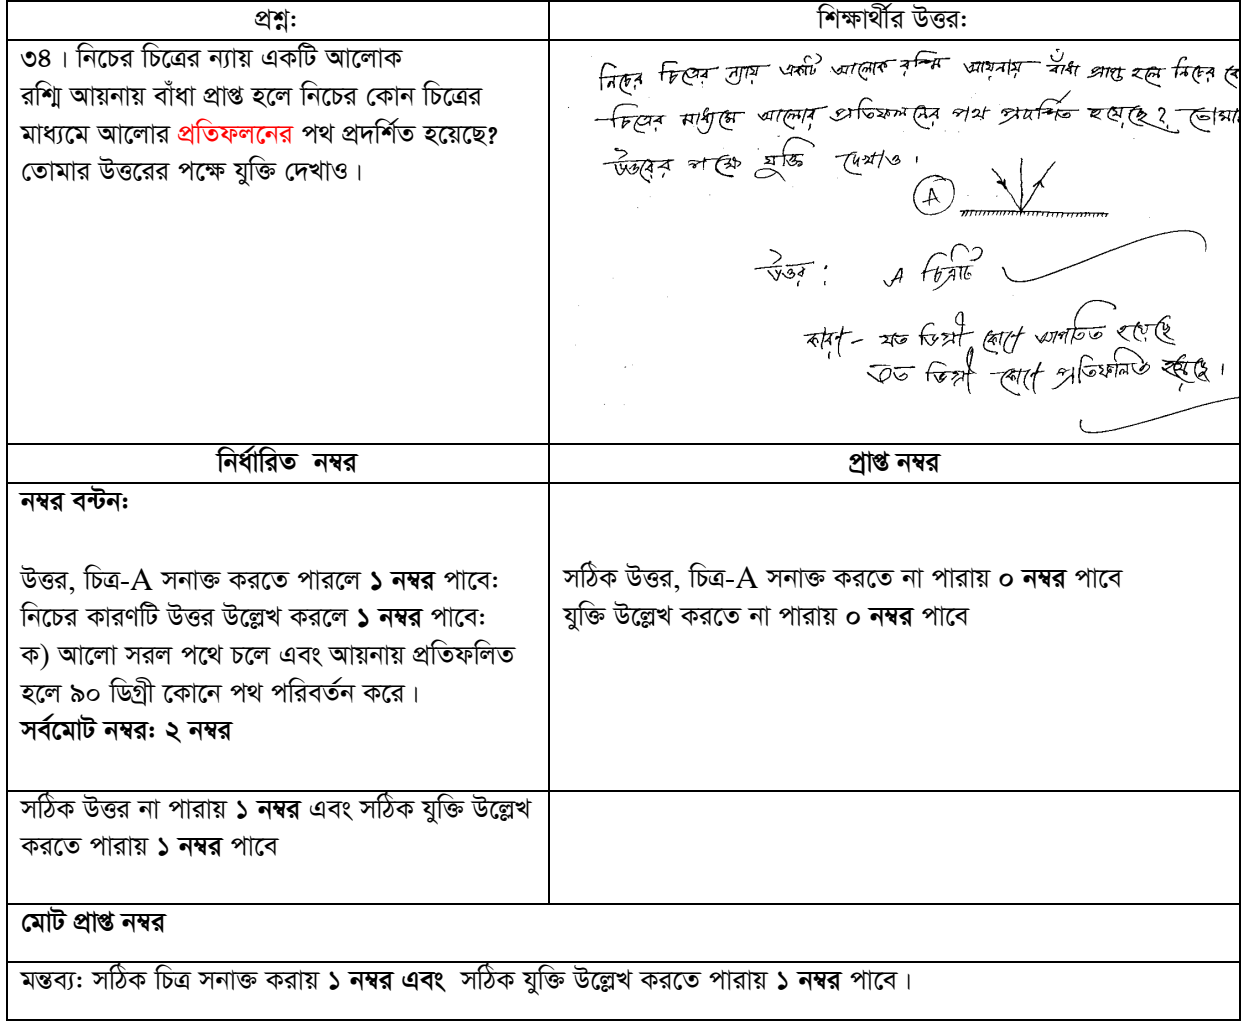 প্রশ্ন:
শিক্ষার্থীর উত্তর:
৩৪। নিচের চিত্রের ন্যায় একটি আলোক
রশ্মি আয়নায় বাঁধা প্রাপ্ত হলে নিচের কোন চিত্রের
মাধ্যমে আলোর প্রতিফলনের পথ প্রদর্শিত হয়েছে?
তোমার উত্তরের পক্ষে যুক্তি দেখাও।
নিচের চিত্রের ন্যায় একটি আলোক রশ্মি আয়নায় বাঁধা প্রাপ্ত হলে নিচের
চিত্রের মাধ্যমে আলোর প্রতিফলনের পথ প্রদর্শিত হয়েছে?
উত্তরের পক্ষে যুক্তি দেখাও।
A
উত্তর: A চিত্রটি
কারণ - যত ডিগ্রী কোণে আপতিত হয়েছে
তত ডিগ্রী কোণে প্রতিফলিত হয়েছে।
নির্ধারিত নম্বর
প্রাপ্ত নম্বর
নম্বর বন্টন:
উত্তর, চিত্র-A সনাক্ত করতে পারলে ১ নম্বর পাবে:
নিচের কারণটি উত্তর উল্লেখ করলে ১ নম্বর পাবে:
ক) আলো সরল পথে চলে এবং আয়নায় প্রতিফলিত
হলে ৯০ ডিগ্রী কোনে পথ পরিবর্তন করে।
সর্বমোট নম্বর: ২ নম্বর
সঠিক উত্তর, চিত্র-A সনাক্ত করতে না পারায় ০ নম্বর পাবে
যুক্তি উল্লেখ করতে না পারায় ০ নম্বর পাবে
সঠিক উত্তর না পারায় ১ নম্বর এবং সঠিক যুক্তি উল্লেখ
করতে পারায় ১ নম্বর পাবে
মোট প্রাপ্ত নম্বর
মন্তব্য: সঠিক চিত্র সনাক্ত করায় ১ নম্বর এবং সঠিক যুক্তি উল্লেখ করতে পারায় ১ নম্বর পাবে।